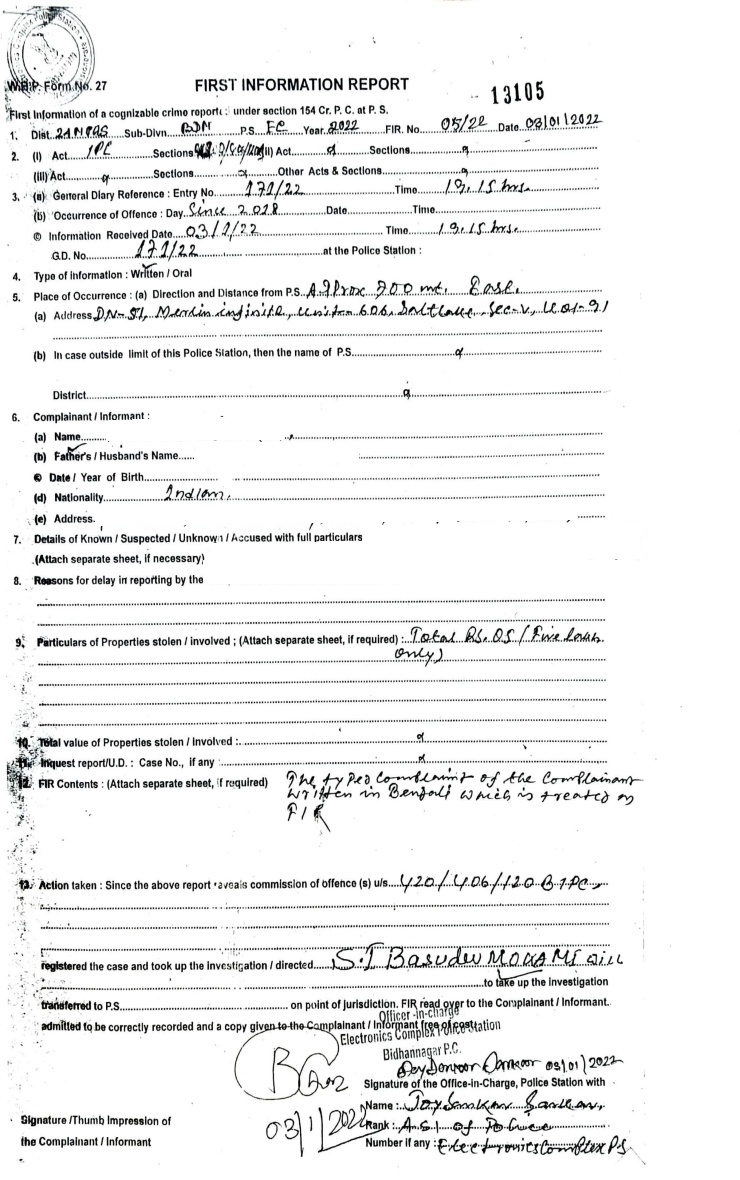 W.B.P. Form No. 27
FIRST INFORMATION REPORT
13105
First Information of a cognizable crime report: under section 154 Cr. P. C. at P. S.
1. Dist. 24 NPGS Sub-Divn. BDN P.S. EC Year 2022 FIR. No. 05/22 Date 03/01/2022
2. (I) Act IPC Sections (II) Act Sections
(III) Act Sections Other Acts & Sections
3. (a) General Diary Reference : Entry No. 171/22 Time 19.15 hrs.
(b) Occurrence of Offence : Day Since 2018 Date Time
© Information Received Date 03/1/22 Time 19.15 hrs.
G.D. No. 171/22 at the Police Station :
4. Type of information : Written / Oral
5. Place of Occurrence : (a) Direction and Distance from P.S. Approx 700 mt. East.
(a) Address DN-51, Merlin infinite, unit-606, Saltlake, Sec-V, Kol-91
(b) In case outside limit of this Police Station, then the name of P.S.
District
6. Complainant / Informant :
(a) Name
(b) Father's / Husband's Name
© Date / Year of Birth
(d) Nationality Indian.
(e) Address.
7. Details of Known / Suspected / Unknown / Accused with full particulars
(Attach separate sheet, if necessary)
8. Reasons for delay in reporting by the
9. Particulars of Properties stolen / involved ; (Attach separate sheet, if required) : Total Rs. 05 (Five lakhs
only)
10. Total value of Properties stolen / Involved :
11. Inquest report/U.D. : Case No., if any :
12. FIR Contents : (Attach separate sheet, if required) The typed complaint of the complainant
written in Bengali which is treated as
FIR
13. Action taken : Since the above report reveals commission of offence (s) u/s 420/406/120B IPC
registered the case and took up the investigation / directed S.I Basudev
to take up the Investigation
transferred to P.S. on point of jurisdiction. FIR read over to the Complainant / Informant.
admitted to be correctly recorded and a copy given to the Complainant / Informant free of cost
Officer-in-charge
Electronics Complex Police Station
Bidhannagar P.C.
03/01/2022
Signature of the Office-in-Charge, Police Station with
03/1/2022
Name : Joysankar Sarkar,
Rank : A.S.I of Police
Number if any : Electronics Complex PS
Signature /Thumb Impression of
the Complainant / Informant